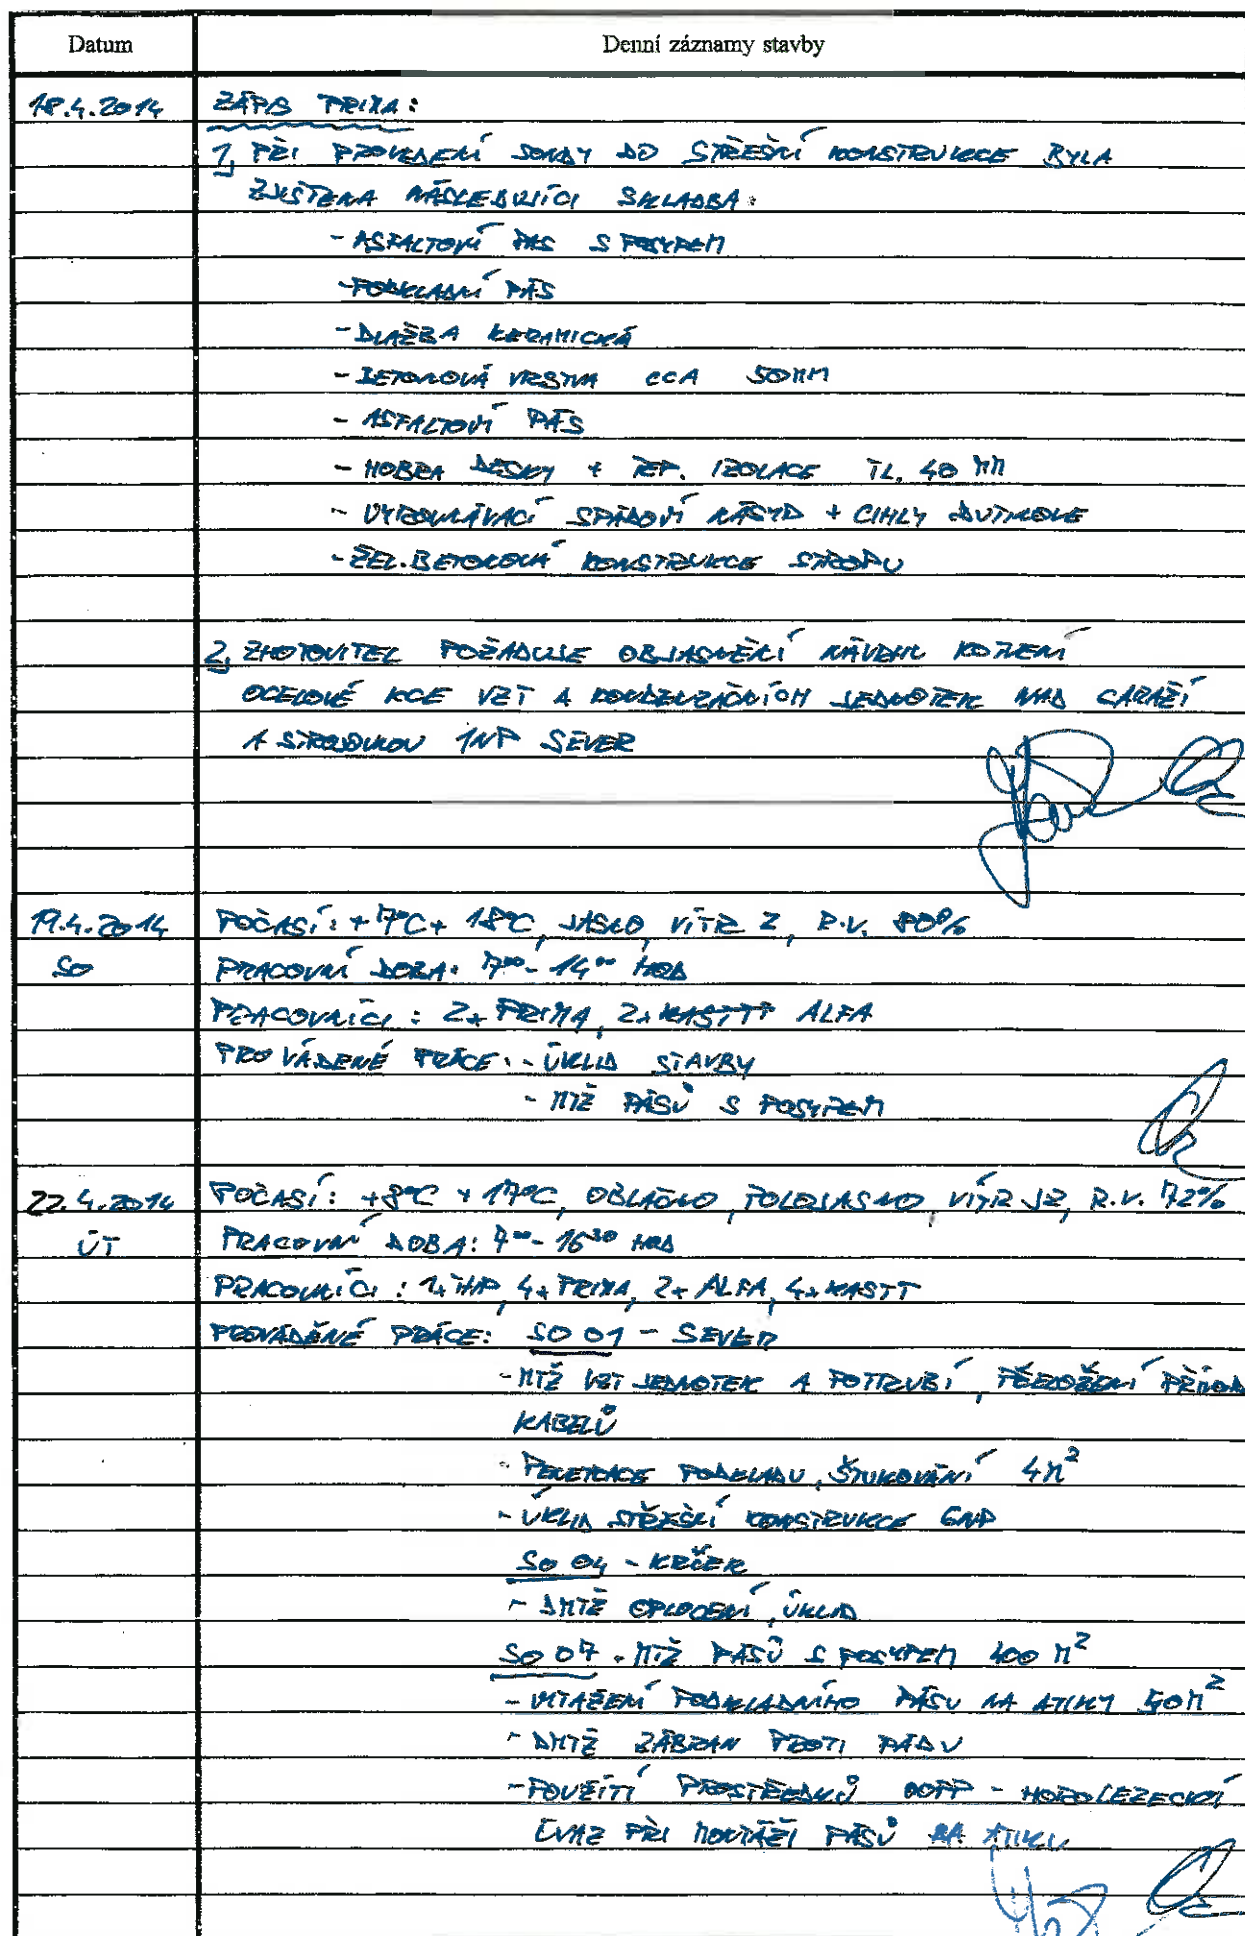 Datum
Denní záznamy stavby
18.4.2014
ZÁPIS PRIMA:
1, PŘI PROVEDENÍ SONDY DO STŘEŠNÍ KONSTRUKCE BYLA
ZJIŠTENA NÁSLEDUJÍCÍ SKLADBA:
- ASFALTOVÍ PAS S POSYPEM
- PODKLADNÍ PÁS
- DLAŽBA KERAMICKÁ
- BETONOVÁ VRSTVA CCA 50MM
- ASFALTOVÍ PÁS
- HOBRA DESKY + TEP. IZOLACE TL. 40 MM
- VYROVNÁVACÍ SPÁDOVÍ NÁSYP + CIHLY DUTINOVE
- ŽEL. BETONOVÁ KONSTRUKCE STROPU
2, ZHOTOVITEL POŽADUJE OBJASNĚNÍ NÁVRHU KOTVENÍ
OCELOVÉ KCE VZT A KONDENZAČNÍCH JEDNOTEK NAD GARÁŽÍ
A STROJOVNOU 1NP SEVER
19.4.2014
POČASÍ: +7°C + 18°C, JASNO, VÍTR Z, R.V. 80%
SO
PRACOVNÍ DOBA: 7⁰⁰- 14⁰⁰ HOD
PRACOVNÍCI: 2x PRIMA, 2x KASTT ALFA
PROVÁDENÉ PRÁCE: - ÚKLID STAVBY
- MTŽ PÁSŮ S POSYPEM
22.4.2014
POČASÍ: +8°C + 17°C, OBLAČNO, POLOJASNO, VÍTR JZ, R.V. 72%
ÚT
PRACOVNÍ DOBA: 7⁰⁰- 16³⁰ HOD
PRACOVNÍCI: 1x HP, 4x PRIMA, 2x ALFA, 4x KASTT
PROVÁDĚNÉ PRÁCE: SO 01 - SEVER
- MTŽ VZT JEDNOTEK A POTRUBÍ, PŘELOŽENÍ
KABELŮ
- PENETRACE PODKLADU, ŠTUKOVÁNÍ 4M²
- ÚKLID STŘEŠNÍ KONSTRUKCE 6NP
SO 04 - KRČEK
- DMTŽ OPLOCENÍ, ÚKLID
SO 07 - MTŽ PÁSŮ S POSYPEM 400 M²
- VYTAŽENÍ PODKLADNÍHO PÁSU NA ATIKY 50M²
- DMTŽ ZÁBRAN PROTI PÁDU
- POUŽITÍ PROSTŘEDKŮ OOPP - HOROLEZECKÍ
ÚVAZ PŘI MONTÁŽI PÁSŮ NA ATIKU